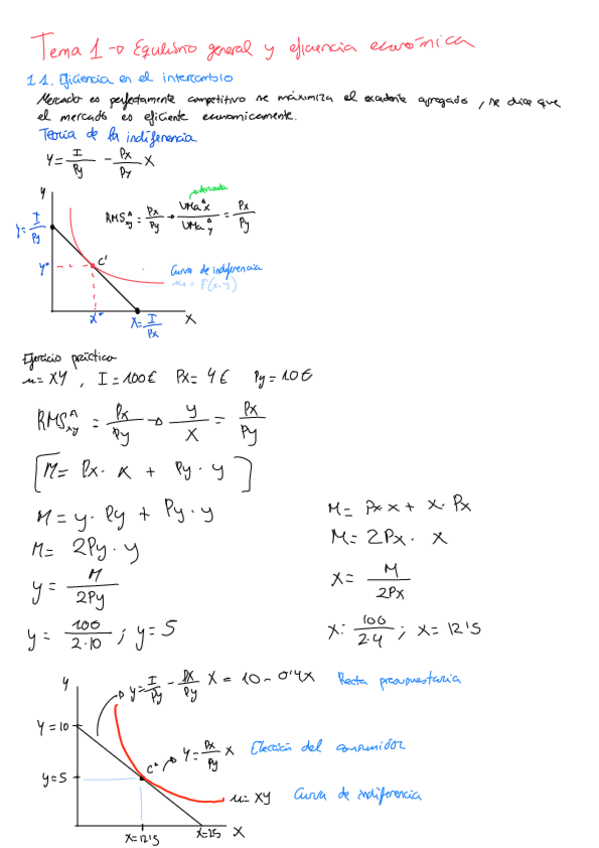 Tema 1 → Equilibrio general y eficiencia económica
1.1. Eficiencia en el intercambio
Mercado es perfectamente competitivo se maximiza el excedente agregado, se dice que
el mercado es eficiente economicamente.
Teoría de la indiferencia
Y = I/Py - Px/Py X
Y
derivada
RMS^A_xy = Px/Py → UMa^A_x/UMa^A_y = Px/Py
Y = I/Py
C'
Y*
Curva de indiferencia
u = f(x,y)
X*
X = I/Px
X
Ejercicio práctico
u = XY , I = 100€ Px = 4€ Py = 10€
RMS^A_xy = Px/Py → y/x = Px/Py
[M = Px · x + Py · y]
M = y · Py + Py · y
M = 2Py · y
y = M/2Py
y = 100/2·10 ; y = 5
M = Px x + x · Px
M = 2Px · x
X = M/2Px
X: 100/2·4 ; X = 12'5
Y
y = I/Py - Px/Py X = 10 - 0'4X Recta presupuestaria
Y = 10
C* → Y = Px/Py X Elección del consumidor
y = 5
u = XY Curva de indiferencia
X = 12'5
X = 25
X